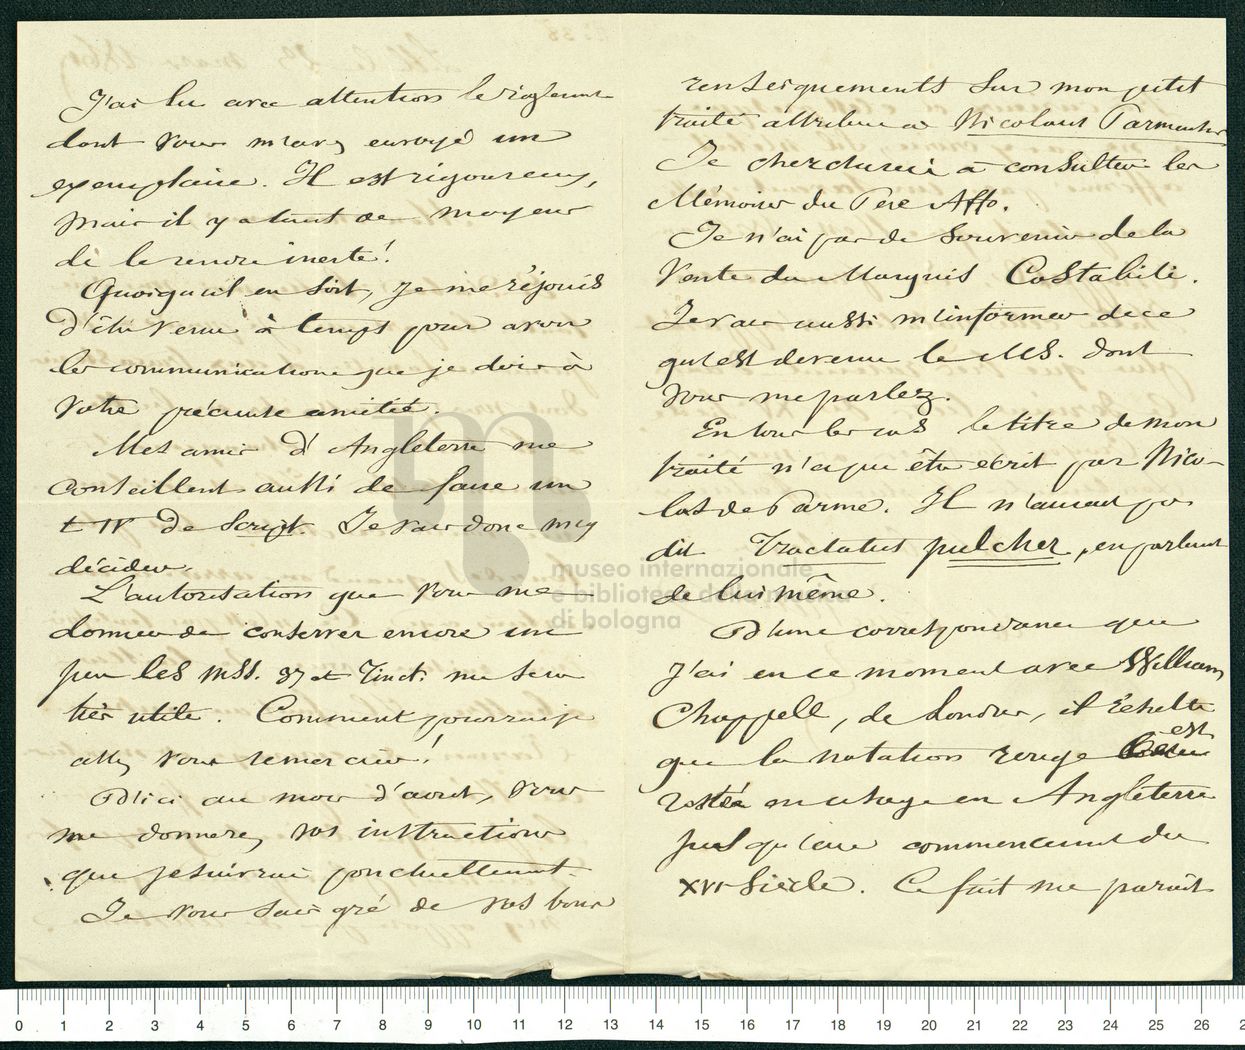 J'ai lu avec attention le règlement
dont vous m'avez envoyé un
exemplaire. Il est rigoureux,
mais il y a tant de moyens
de le rendre inerte!
Quoiqu'il en soit, je me réjouis
d'être venu à temps pour avoir
les communications que je dois à
votre précieuse amitié.
Mes amis d'Angleterre me
conseillent aussi de faire un
t. IV de Script. Je vais donc m'y
décider.
L'autorisation que vous me
donnez de conserver encore un
peu les mss. 37 et Tinct. me sera
très utile. Comment pourrais-je
assez vous remercier!
D'ici au mois d'août, vous
me donnerez vos instructions
que je suivrai ponctuellement.
Je vous sais gré de vos bons
renseignements sur mon petit
traité attribué à Nicolaus Parmensis
Je chercherai à consulter les
Mémoires du Père Affo.
Je n'ai pas de souvenir de la
vente du Marquis Costabili.
Je vais aussi m'informer de ce
qu'est devenu le MS. dont
vous me parlez.
En tous les cas le titre de mon
traité n'a pu être écrit par Nico-
las de Parme. Il n'aurait pas
dit Tractatus pulcher, en parlant
de lui même.
D'une correspondance que
j'ai en ce moment avec William
Chappell, de Londres, il résulte
que la notation rouge est
restée en usage en Angleterre
jusqu'au commencement du
XVIe siècle. Ce fait me paraît
museo internazionale
e biblioteca della musica
di bologna
0 1 2 3 4 5 6 7 8 9 10 11 12 13 14 15 16 17 18 19 20 21 22 23 24 25 26